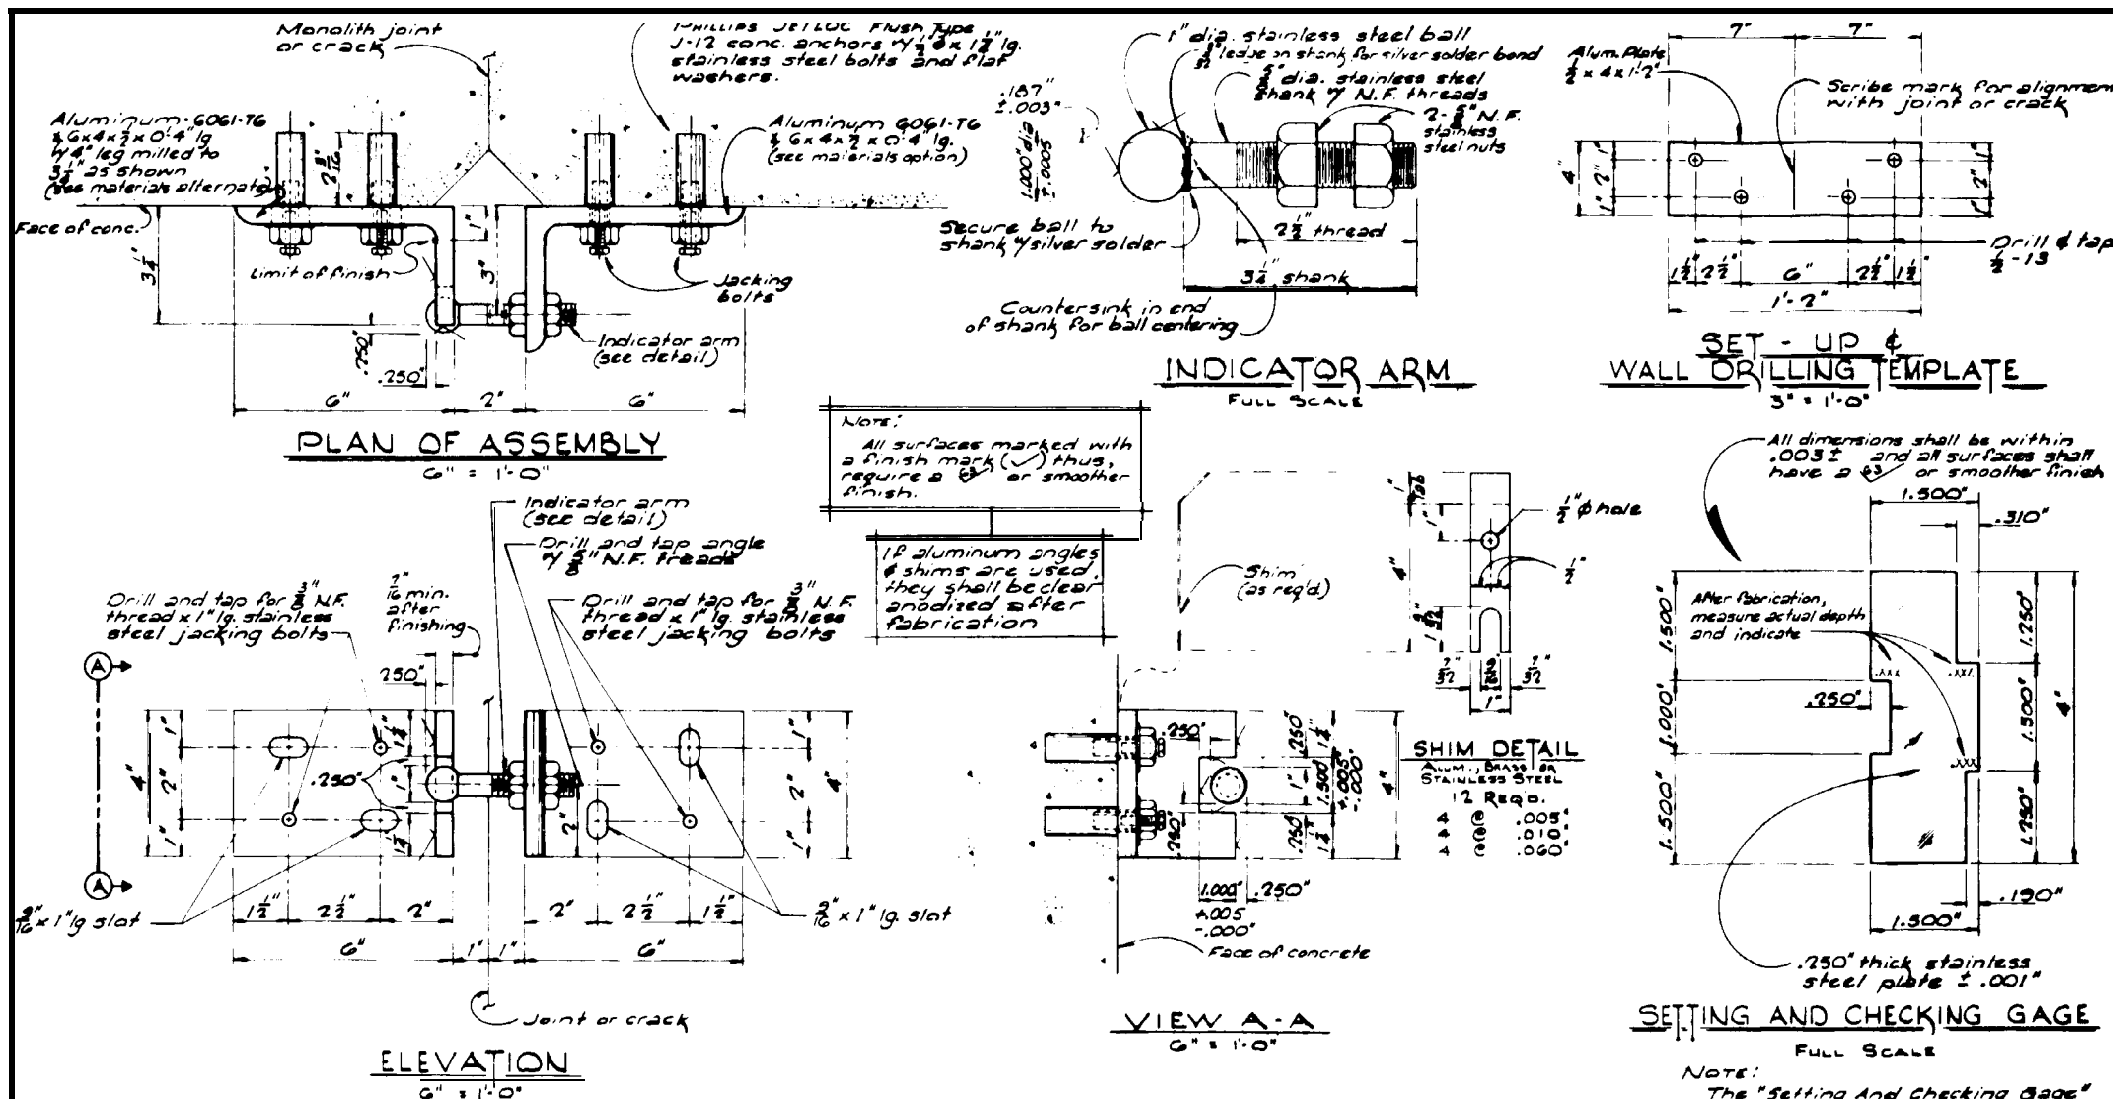 Monolith joint
or crack
PHILLIPS JETLOC Flush Type
J-12 conc. anchors
stainless steel bolts and flat
washers.
Aluminum-6061-T6
6x4x½x0'-4" lg
w/4" leg milled to
3¼" as shown
(see materials alternate)
Aluminum 6061-T6
6x4x½x0'-4" lg.
(see materials option)
Face of conc.
Limit of finish
Jacking
bolts
Indicator arm
(see detail)
2 9/16"
1"
3"
3¼"
.250"
.250"
6"
2"
6"
PLAN OF ASSEMBLY
6" = 1'-0"
1" dia. stainless steel ball
ledge on shank for silver solder bond
⅝" dia. stainless steel
shank w/ N.F. threads
2-⅝" N.F.
stainless
steel nuts
.187"
±.003"
1.000" dia
±.0005
Secure ball to
shank w/ silver solder
2½" thread
3¼" shank
Countersink in end
of shank for ball centering
INDICATOR ARM
FULL SCALE
7"
7"
Alum. Plate
½ x 4 x 1'-2"
Scribe mark for alignment
with joint or crack
4"
1"
2"
1"
1"
2"
1"
Drill & tap
½-13
1½"
2½"
6"
2½"
1½"
1'-2"
SET-UP &
WALL DRILLING TEMPLATE
3" = 1'-0"
NOTE:
All surfaces marked with
a finish mark (✓) thus,
require a 63 or smoother
finish.
If aluminum angles
& shims are used,
they shall be clear
anodized after
fabrication
Indicator arm
(see detail)
Drill and tap angle
w/ ⅝" N.F. treads
Drill and tap for ⅜" N.F.
thread x 1" lg. stainless
steel jacking bolts
7/16" min.
after
finishing
Drill and tap for ⅜" N.F.
thread x 1" lg. stainless
steel jacking bolts
.250"
A
A
4"
1"
2"
1"
1½"
.250"
1"
1½"
2"
1"
2"
1"
4"
9/16" x 1" lg slot
1½"
2½"
2"
2"
2½"
1½"
9/16" x 1" lg. slot
6"
1"
1"
6"
Joint or crack
ELEVATION
6" = 1'-0"
Shim
(as req'd.)
1" Tab
1"
4"
½" ϕ hole
½"
1 9/32"
7/32"
9/16"
7/32"
1"
SHIM DETAIL
ALUM., BRASS OR
STAINLESS STEEL
12 REQD.
4 @ .005"
4 @ .010"
4 @ .060"
.250"
.250"
.250"
1"
.250"
1¼"
1.500
+.005"
-.000"
1¼"
4"
1.000"
.250"
+.005
-.000"
Face of concrete
VIEW A-A
6" = 1'-0"
All dimensions shall be within
.003± and all surfaces shall
have a 63 or smoother finish
1.500"
.310"
After fabrication,
measure actual depth
and indicate
.xxx
.xxx
.xxx
1.500"
1.000"
1.500"
.250"
1.250"
1.500"
1.250"
4"
.190"
1.500"
.250" thick stainless
steel plate ±.001"
SETTING AND CHECKING GAGE
FULL SCALE
NOTE:
The "Setting And Checking Gage"